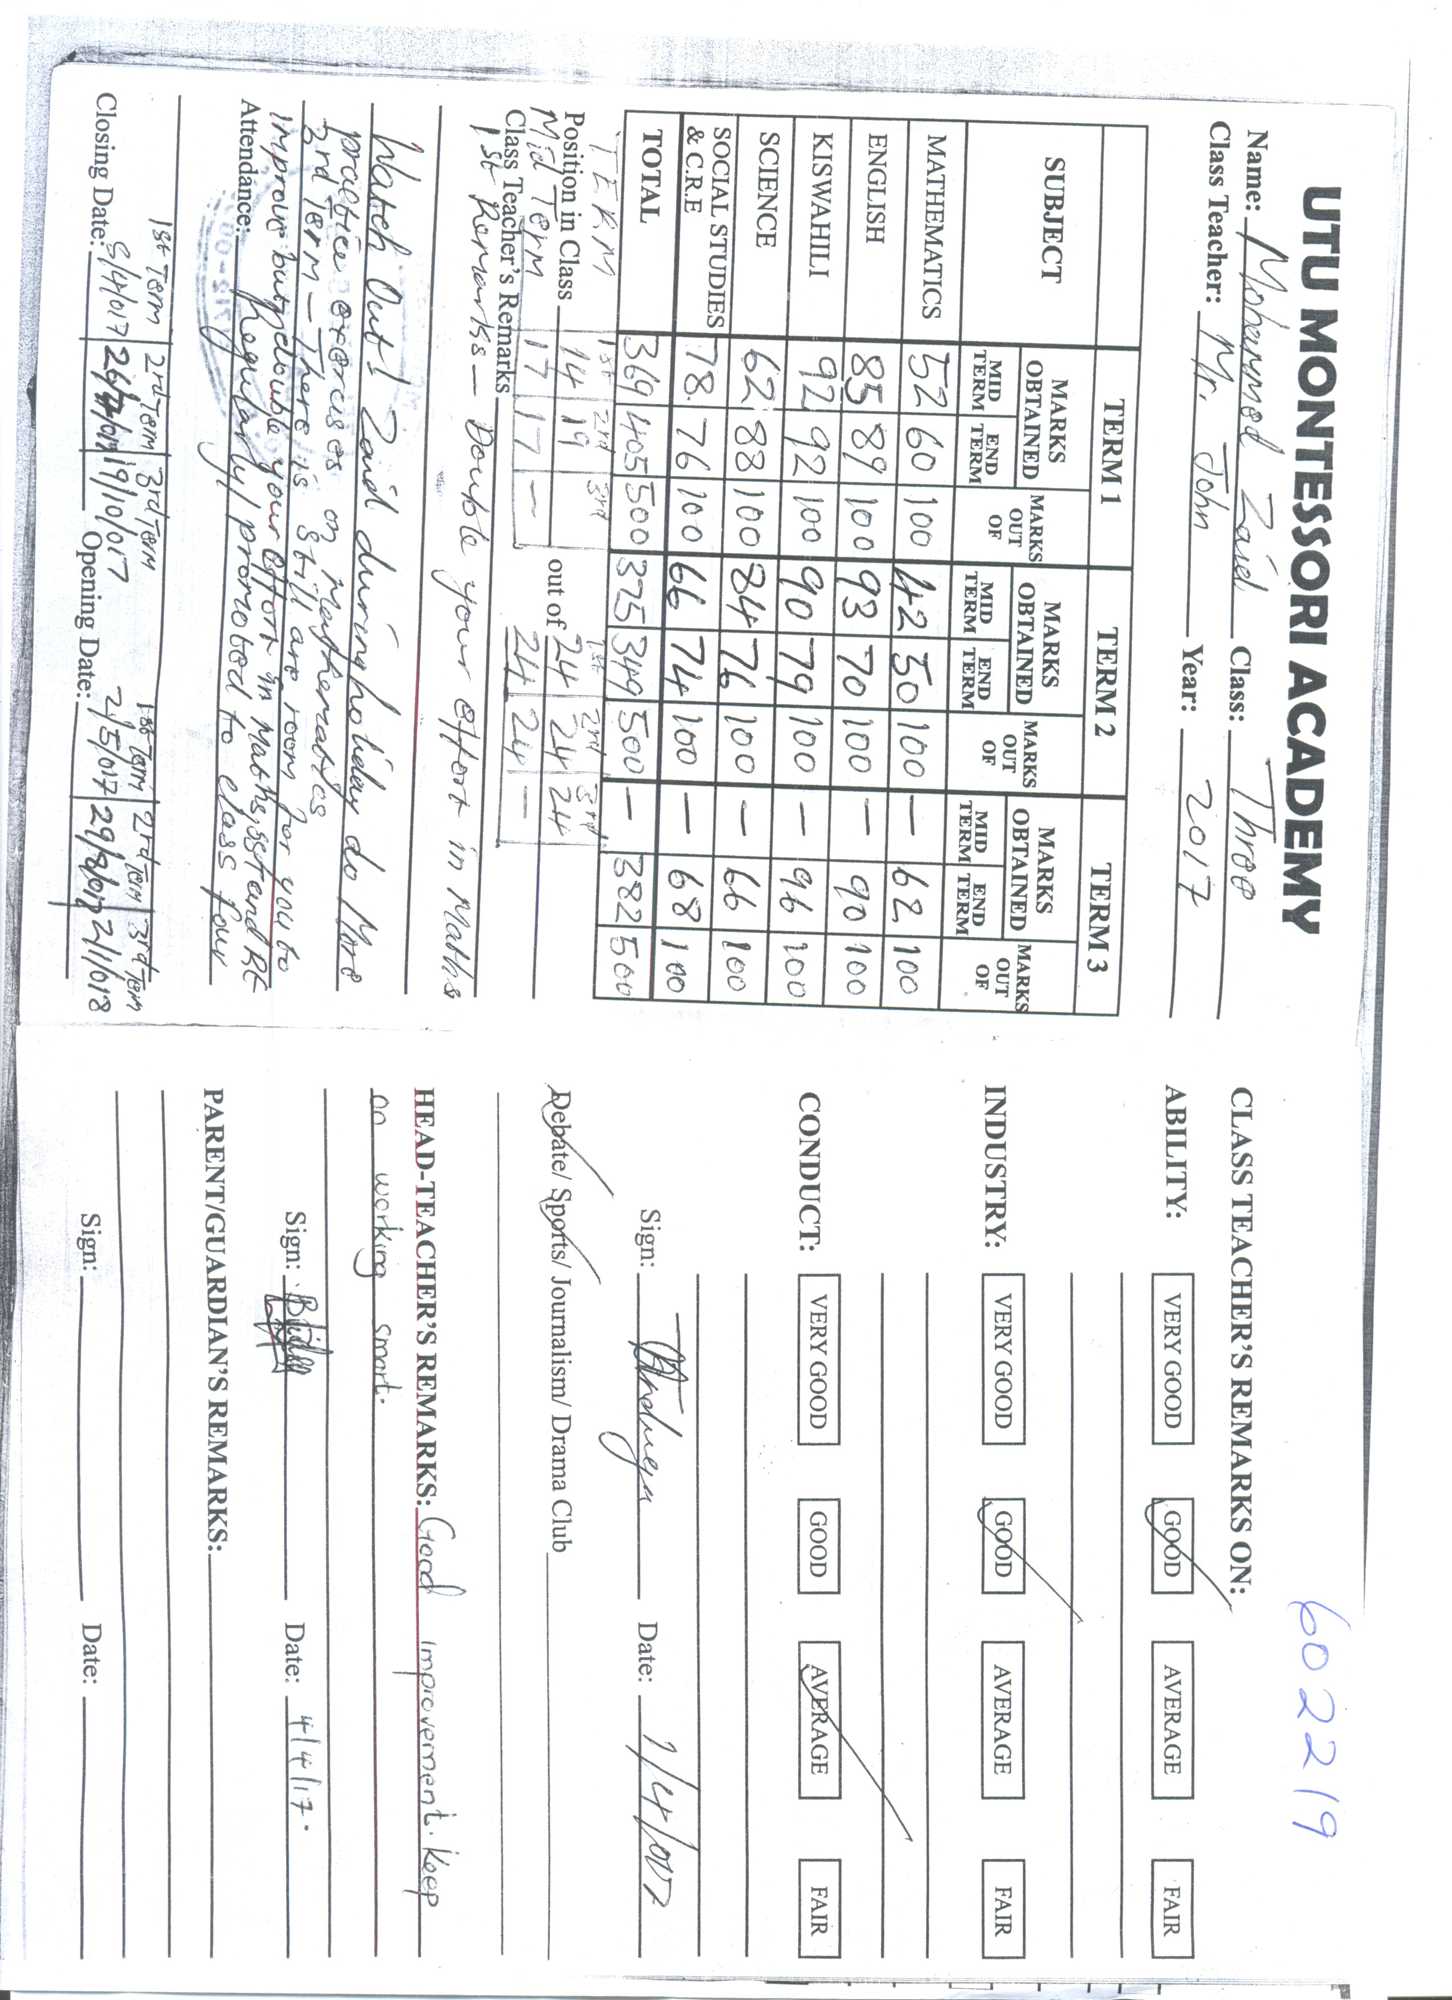 UTU MONTESSORI ACADEMY
Name: Mohammed Zaid Class: Three
Class Teacher: Mr. John Year: 2017
SUBJECT TERM 1 TERM 2 TERM 3
MARKS OBTAINED MARKS OUT OF MARKS OBTAINED MARKS OUT OF MARKS OBTAINED MARKS OUT OF
MID TERM END TERM MID TERM END TERM MID TERM END TERM
MATHEMATICS 52 60 100 42 50 100 — 62 100
ENGLISH 85 89 100 93 70 100 — 90 100
KISWAHILI 92 92 100 90 79 100 — 96 100
SCIENCE 62 88 100 84 76 100 — 66 100
SOCIAL STUDIES & C.R.E 78. 76 100 66 74 100 — 68 100
TOTAL 369 405 500 375 349 500 — 382 500
TERM 1st 2nd 3rd 1st 2nd 3rd
Position in Class 14 19 out of 24 24 24
Mid Term 17 17 — 24 24 —
Class Teacher's Remarks
1st Remarks — Double your effort in Maths
Watch Out! Zaid during holiday do More
practice exercises on Mathematics
3rd Term — There is still are room for you to
improve but double your effort in Maths, sst and RE
Attendance: Regularly / promoted to class four
1st Term 2nd Term 3rd Term 1st Term 2nd Term 3rd Term
Closing Date: 5/4/017 26/7/017 19/10/017 Opening Date: 2/5/017 29/8/017 2/1/018
602219
CLASS TEACHER'S REMARKS ON:
ABILITY: VERY GOOD GOOD AVERAGE FAIR
INDUSTRY: VERY GOOD GOOD AVERAGE FAIR
CONDUCT: VERY GOOD GOOD AVERAGE FAIR
Sign: Date: 1/4/017
Debate/ Sports/ Journalism/ Drama Club
HEAD-TEACHER'S REMARKS: Good improvement. Keep
on working smart.
Sign: Date: 4/4/17.
PARENT/GUARDIAN'S REMARKS:
Sign: Date: